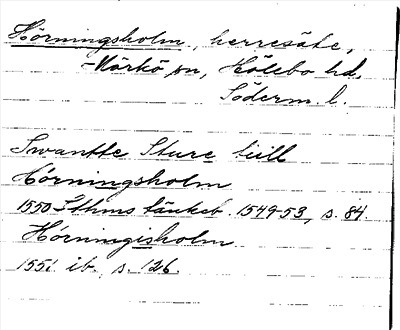 Hörningsholm, herresäte,
Mörkö sn, Hölebo hd,
Söderm. l.
Swantte Sture tiill
Hörningsholm
1550 Sthms tänkeb. 1549-53, s. 84.
Hörningisholm
1551 ib. s. 126.